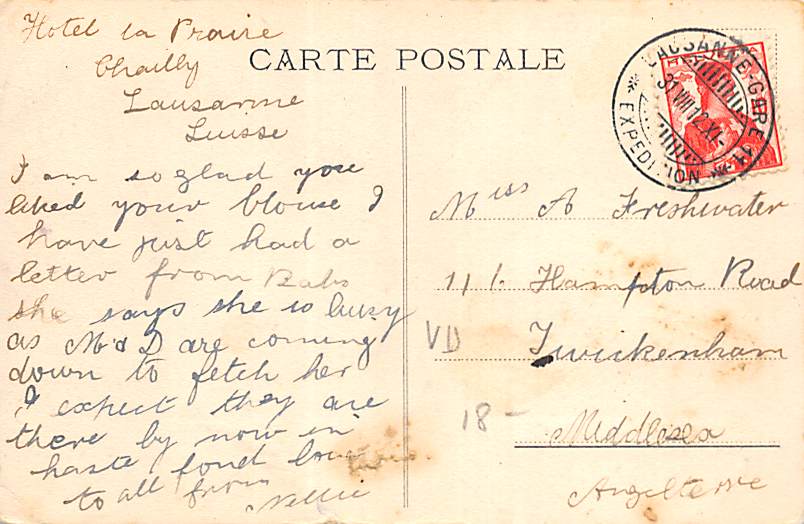 Hotel la Prairie
Chailly
Lausanne
Suisse
CARTE POSTALE
I am so glad you
liked your blouse I
have just had a
letter from Babs
she says she is busy
as M & D are coming
down to fetch her
I expect they are
there by now in
haste fond love
to all from
Nellie
LAUSANNE-GARE
EXPEDITION
HELVETIA
Miss A Freshwater
111. Hampton Road
Twickenham
Middlesex
Angleterre
VD
18-